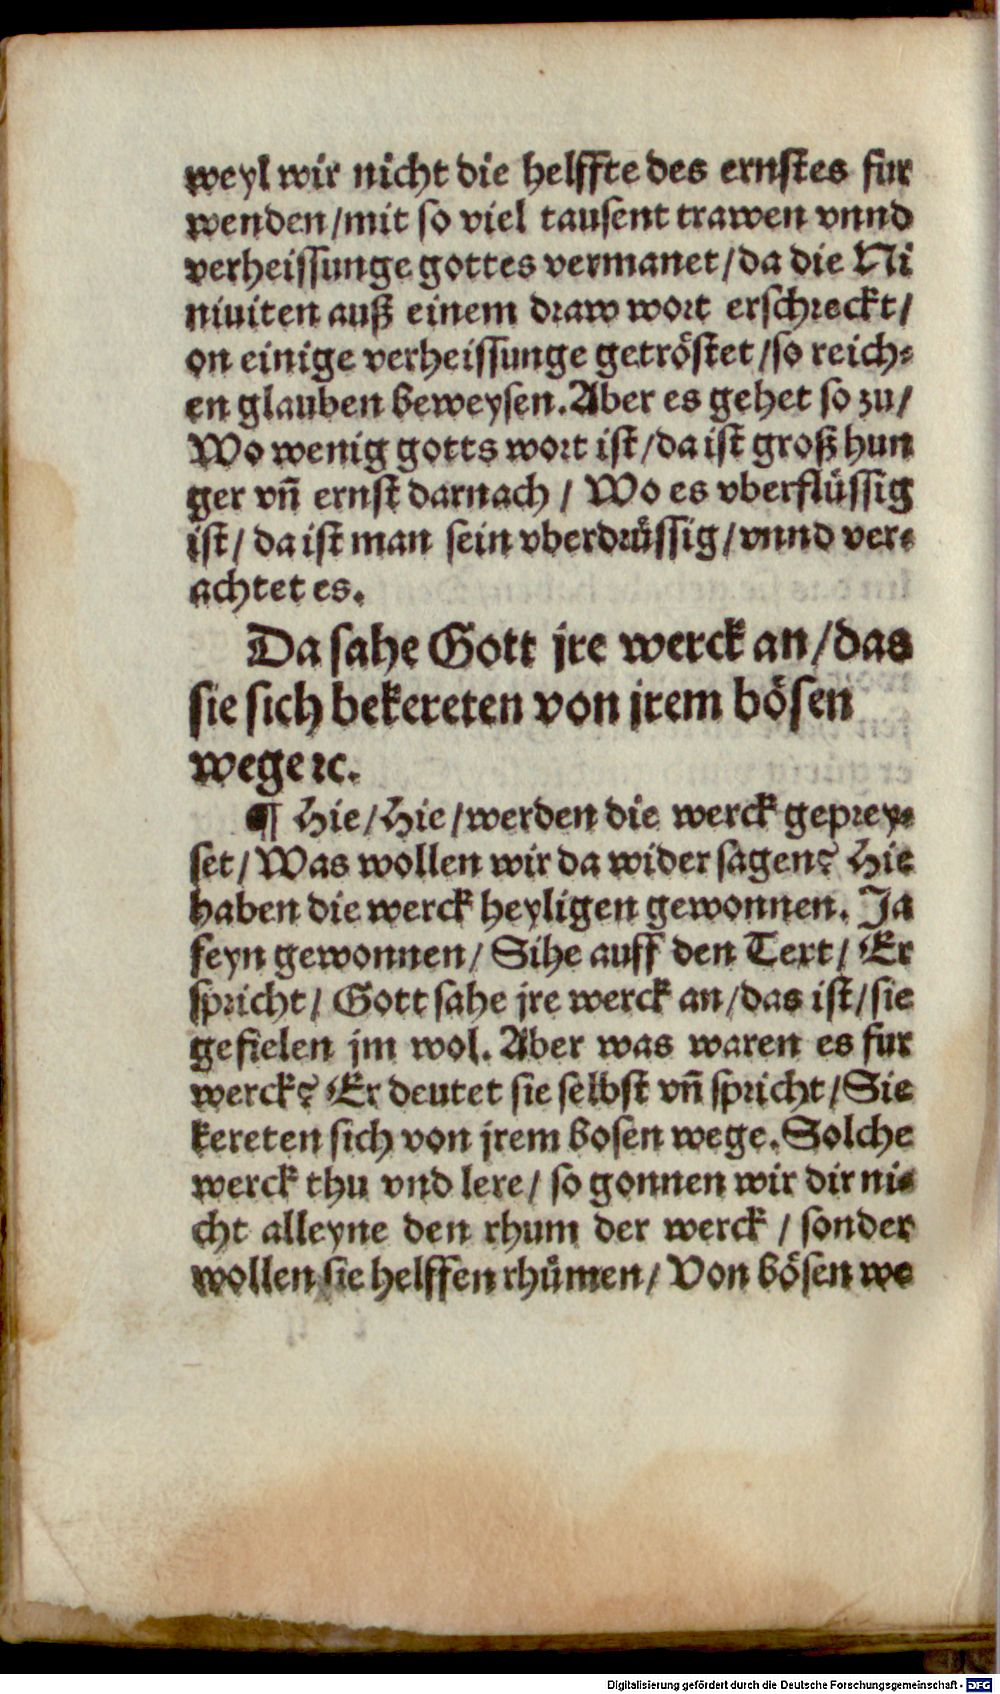 weyl wir nicht die helffte des ernstes fur
wenden/mit so viel tausent trawen vnnd
verheissunge gottes vermanet/da die Ni
niuiten auß einem draw wort erschreckt/
on einige verheissunge getröstet/so reich⸗
en glauben beweysen. Aber es gehet so zu/
Wo wenig gotts wort ist/da ist groß hun
ger vñ ernst darnach / Wo es vberflüssig
ist/ da ist man sein vberdrüssig/vnnd ver⸗
achtet es.
Da sahe Gott jre werck an/das
sie sich bekereten von jrem bösen
wege ꝛc.
¶ Hie/Hie/werden die werck geprey⸗
set/Was wollen wir da wider sagen? Hie
haben die werck heyligen gewonnen. Ja
feyn gewonnen/ Sihe auff den Text/ Er
spricht/ Gott sahe jre werck an/das ist/sie
gefielen jm wol. Aber was waren es fur
werck? Er deutet sie selbst vñ spricht/Sie
kereten sich von jrem bosen wege. Solche
werck thu vnd lere/ so gonnen wir dir ni⸗
cht alleyne den rhum der werck / sonder
wollen sie helffen rhümen/ Von bösen we
Digitalisierung gefördert durch die Deutsche Forschungsgemeinschaft - DFG